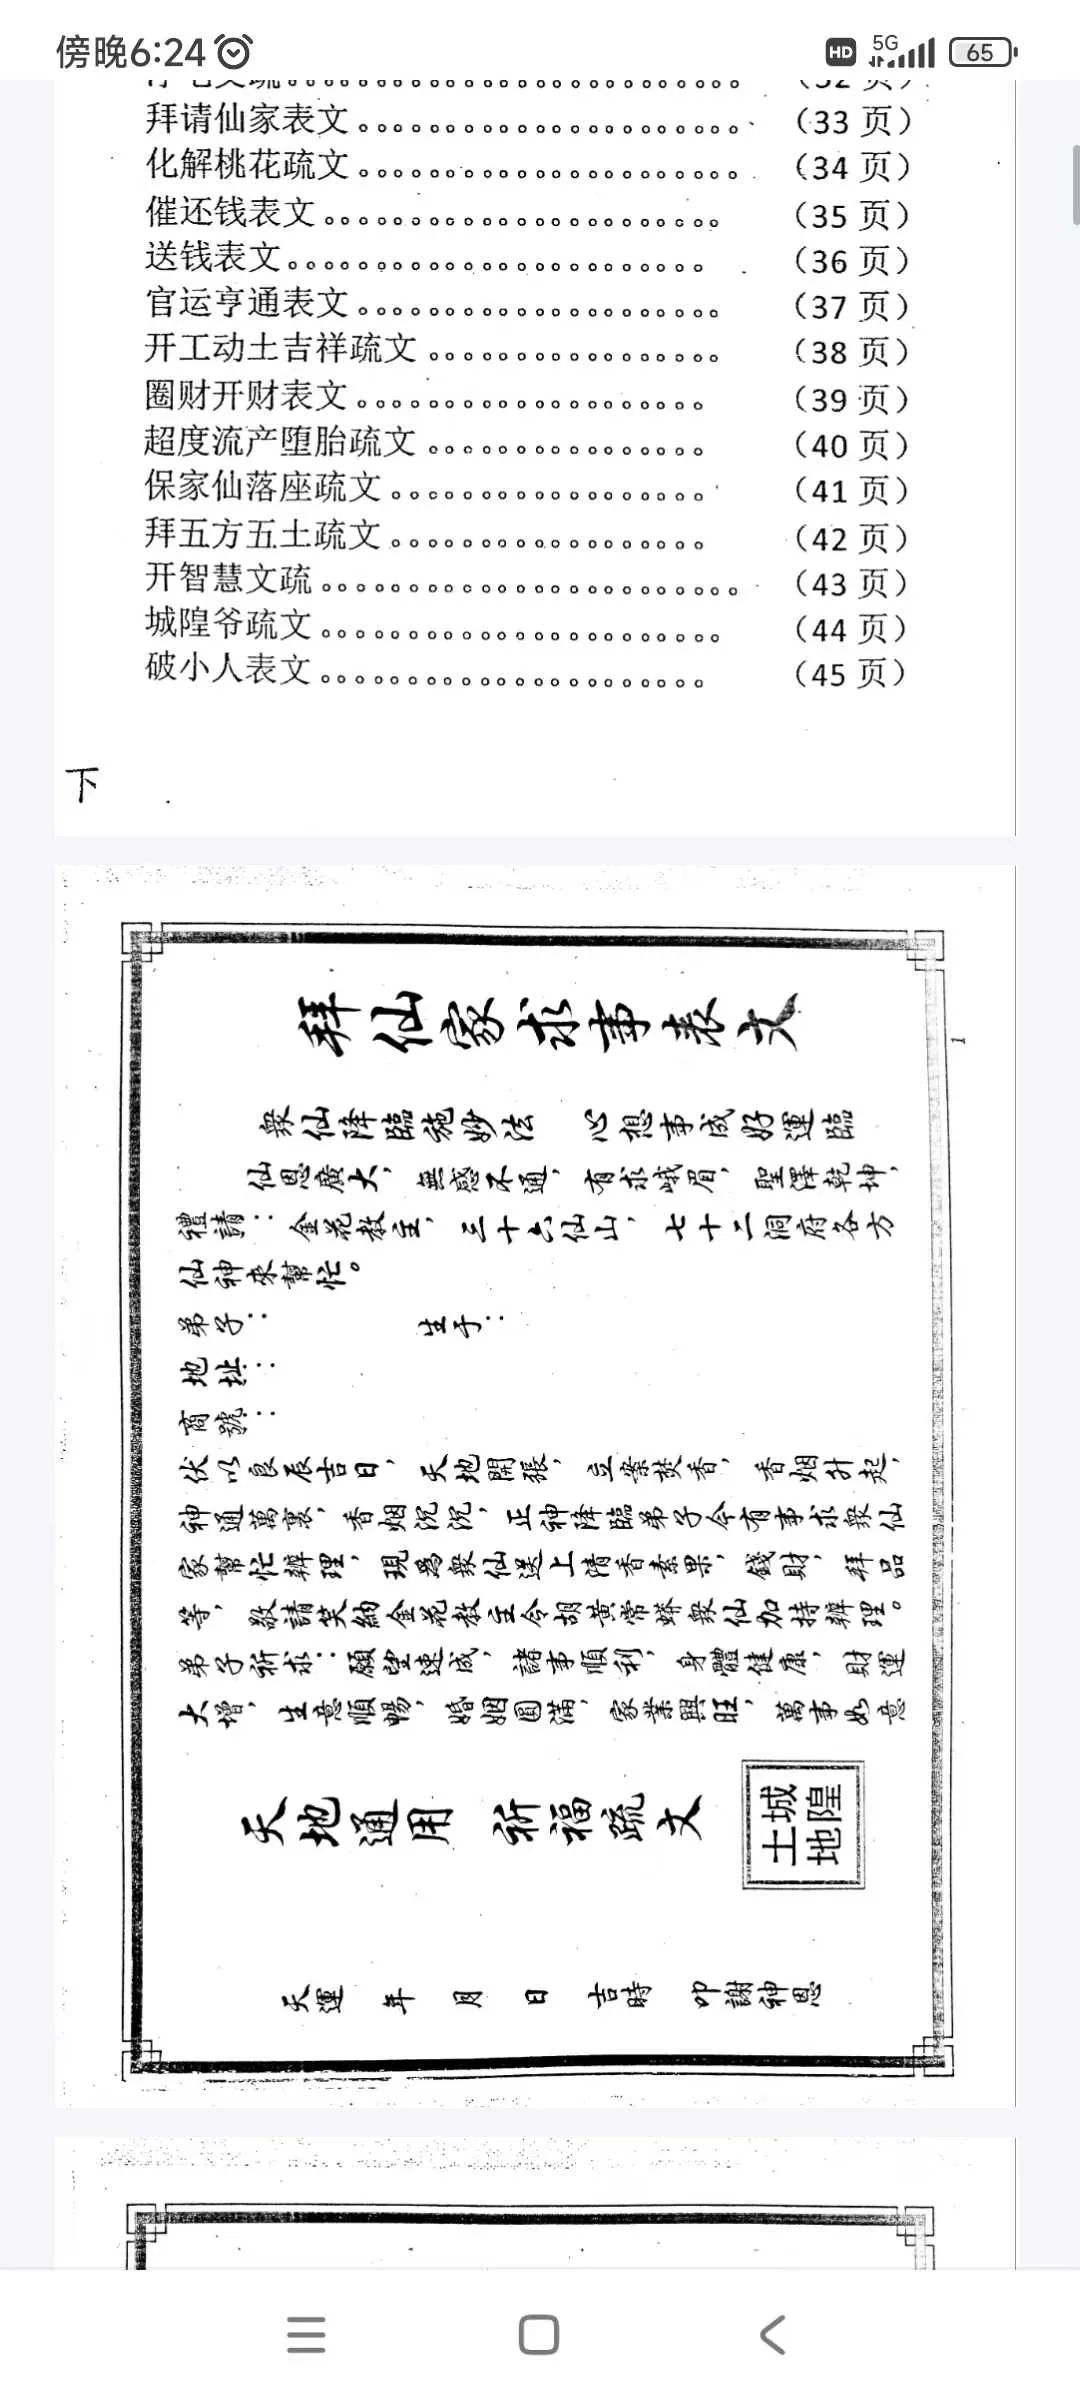 傍晚6:24
HD 5G 65
拜请仙家表文。。。。。。。。。。。。。。。。。。。。。。（33 页）
化解桃花疏文。。。。。。。。。。。。。。。。。。。。。。（34 页）
催还钱表文。。。。。。。。。。。。。。。。。。。。。。。（35 页）
送钱表文。。。。。。。。。。。。。。。。。。。。。。。。（36 页）
官运亨通表文。。。。。。。。。。。。。。。。。。。。。（37 页）
开工动土吉祥疏文。。。。。。。。。。。。。。。。。（38 页）
圈财开财表文。。。。。。。。。。。。。。。。。。。。（39 页）
超度流产堕胎疏文。。。。。。。。。。。。。。。。（40 页）
保家仙落座疏文。。。。。。。。。。。。。。。。。。（41 页）
拜五方五土疏文。。。。。。。。。。。。。。。。。。（42 页）
开智慧文疏。。。。。。。。。。。。。。。。。。。。。。。。（43 页）
城隍爷疏文。。。。。。。。。。。。。。。。。。。。。。。（44 页）
破小人表文。。。。。。。。。。。。。。。。。。。。。。（45 页）
下
1
拜仙家求事表文
眾仙降臨施妙法 心想事成好運臨
仙恩廣大，無惑不通，有求峨眉，聖澤乾坤，
禮請：金花教主，三十六仙山，七十二洞府各方
仙神來幫忙。
弟子： 生于：
地址：
商號：
伏以良辰吉日，天地開張，立案焚香，香烟升起，
神通萬裏，香烟沉沉，正神降臨弟子今有事求眾仙
家幫忙辦理，現為眾仙送上清香素果，錢財，拜品
等，敬請笑納金花教主令胡黃常蟒眾仙加持辦理。
弟子祈求：願望速成，諸事順利，身體健康，財運
大增，生意順暢，婚姻圓滿，家業興旺，萬事如意
天地通用 祈福疏文
城隍
土地
天運 年 月 日 吉時 叩謝神恩